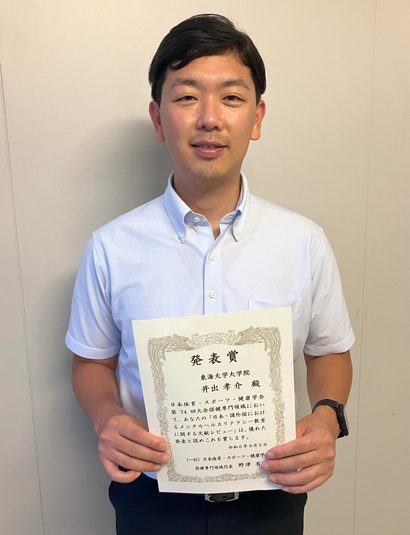 発表賞
東海大学大学院
井出孝介 殿
日本体育・スポーツ・健康学会
第 74 回大会保健専門領域におい
て、あなたの「日本・諸外国におけ
るメンタルヘルスリテラシー教育
に関する文献レビュー」は、優れた
発表と認めこれを賞します。
令和６年９月５日
(一社) 日本体育・スポーツ・健康学
保健専門領域代表 野津